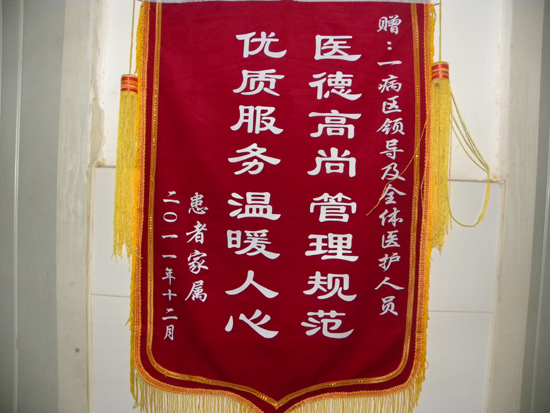 赠：一病区领导及全体医护人员
医德高尚管理规范
优质服务温暖人心
患者家属
二〇一一年十二月